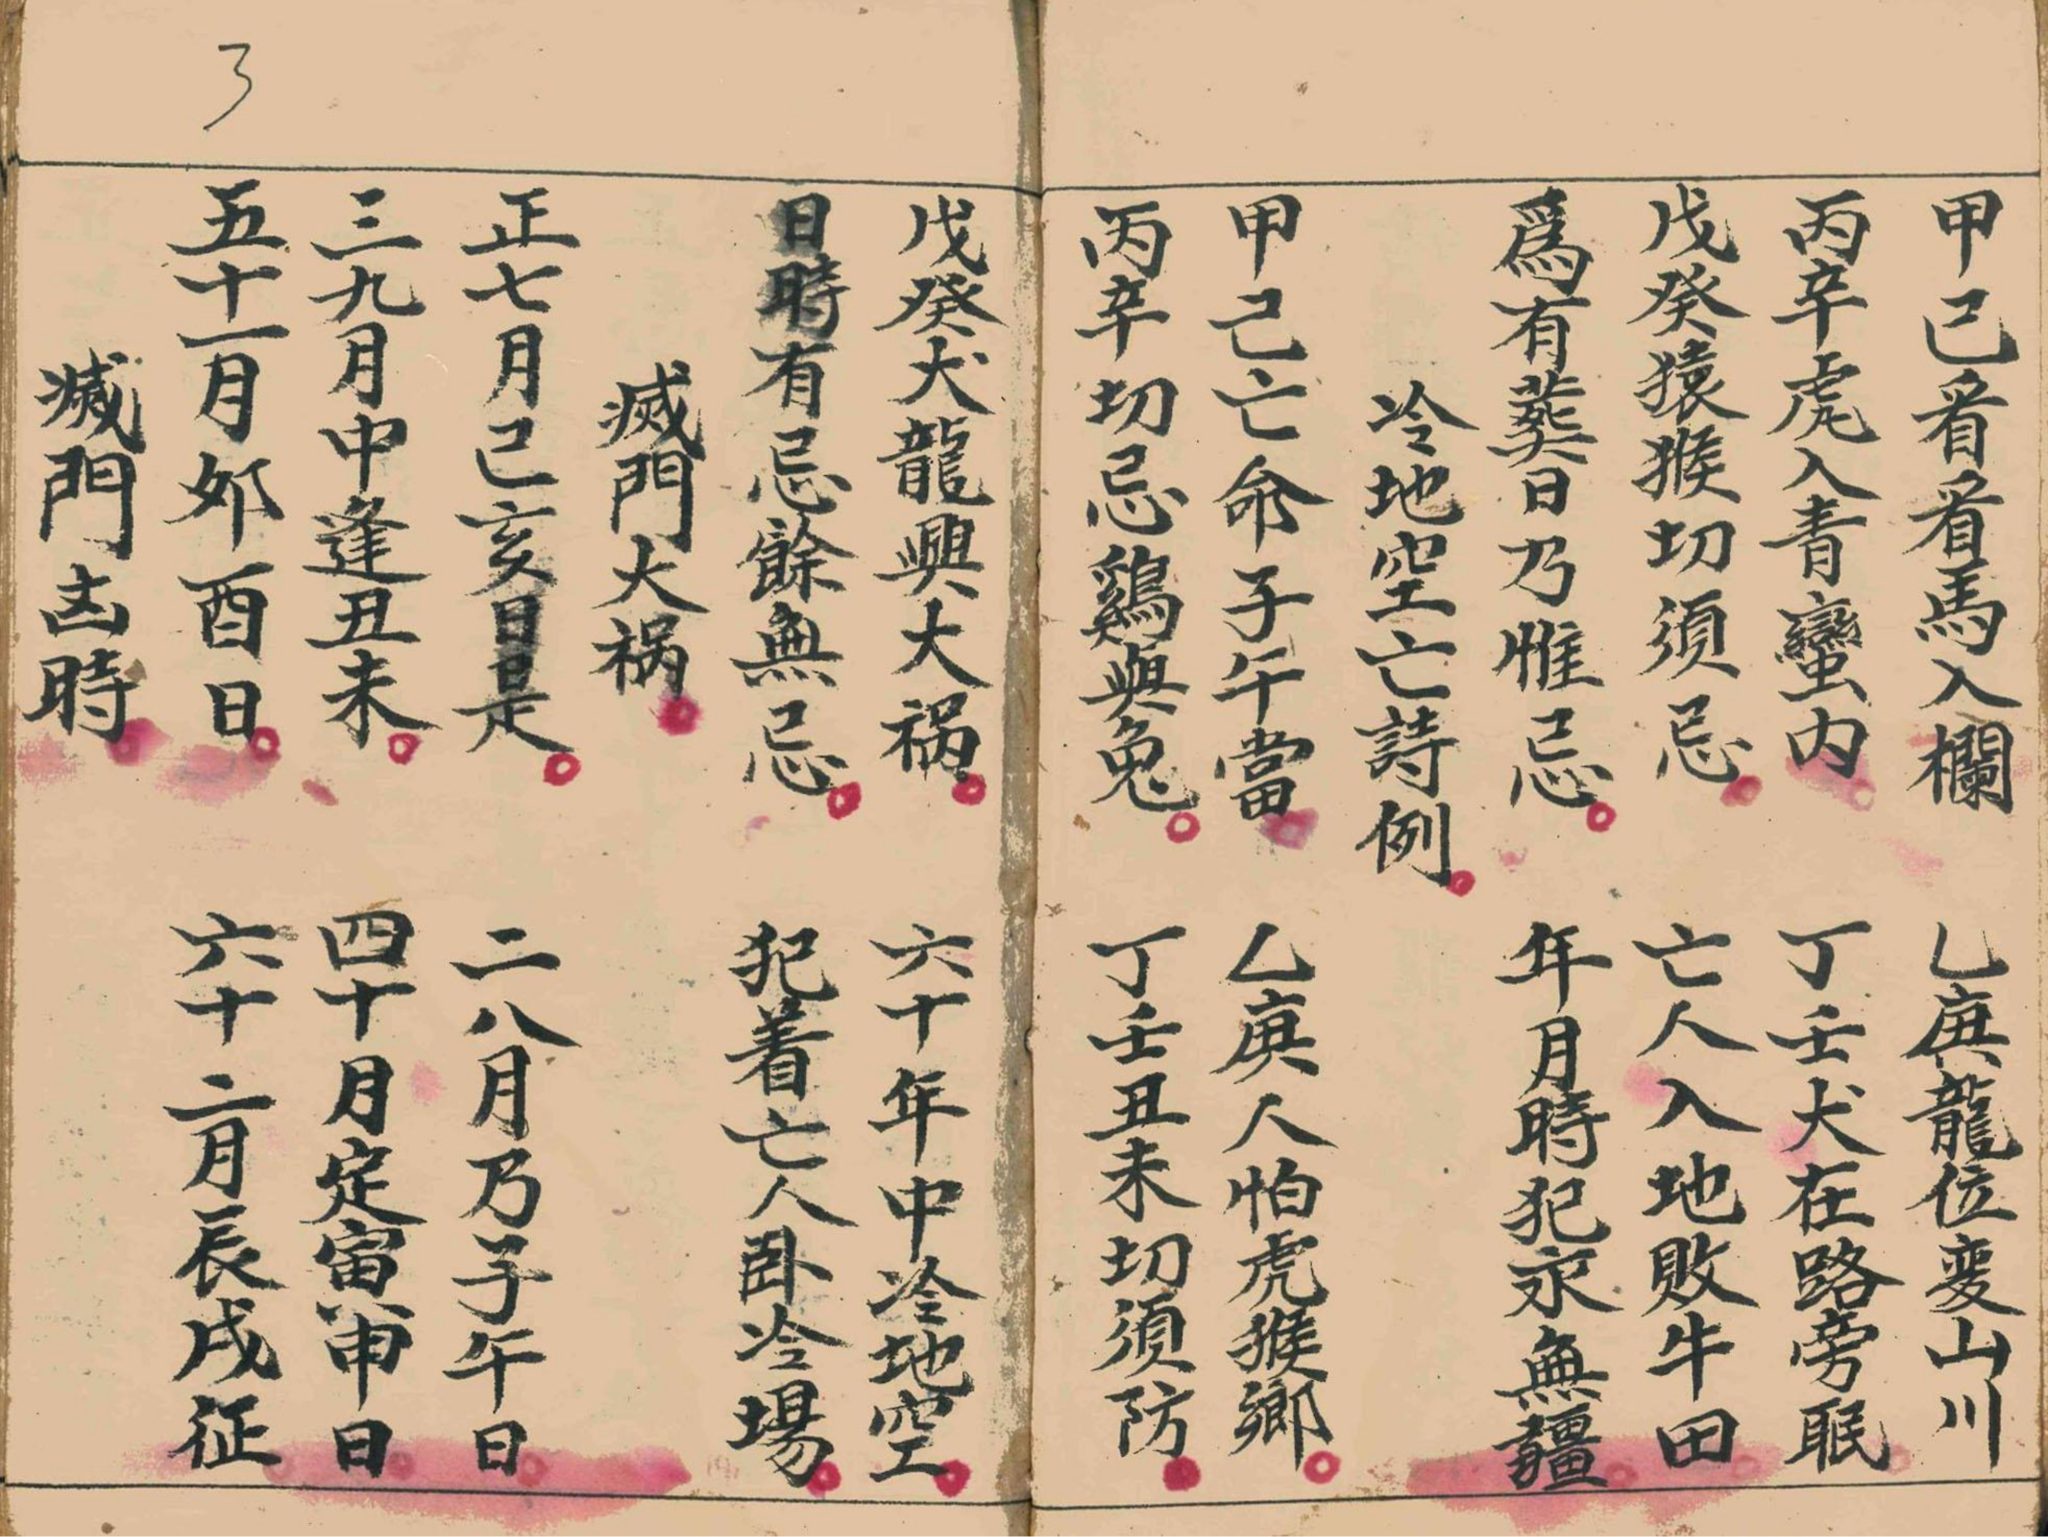 甲己看看馬入欄 乙庚龍位变山川
丙辛虎入青蠻内 丁壬犬在路旁眠
戊癸猿猴切須忌 亡人入地敗牛田
爲有葬日乃惟忌 年月時犯永無疆
冷地空亡詩例
甲己亡命子午當 乙庚人怕虎猴鄉
丙辛切忌鷄與兔 丁壬丑未切須防
戊癸犬龍興大祸 六十年中冷地空
日時有忌餘無忌 犯着亡人卧冷場
滅門大祸
正七月己亥日是 二八月乃子午日
三九月中逢丑未 四十月定寅申日
五十一月卯酉日 六十二月辰戌征
滅門凶時
3